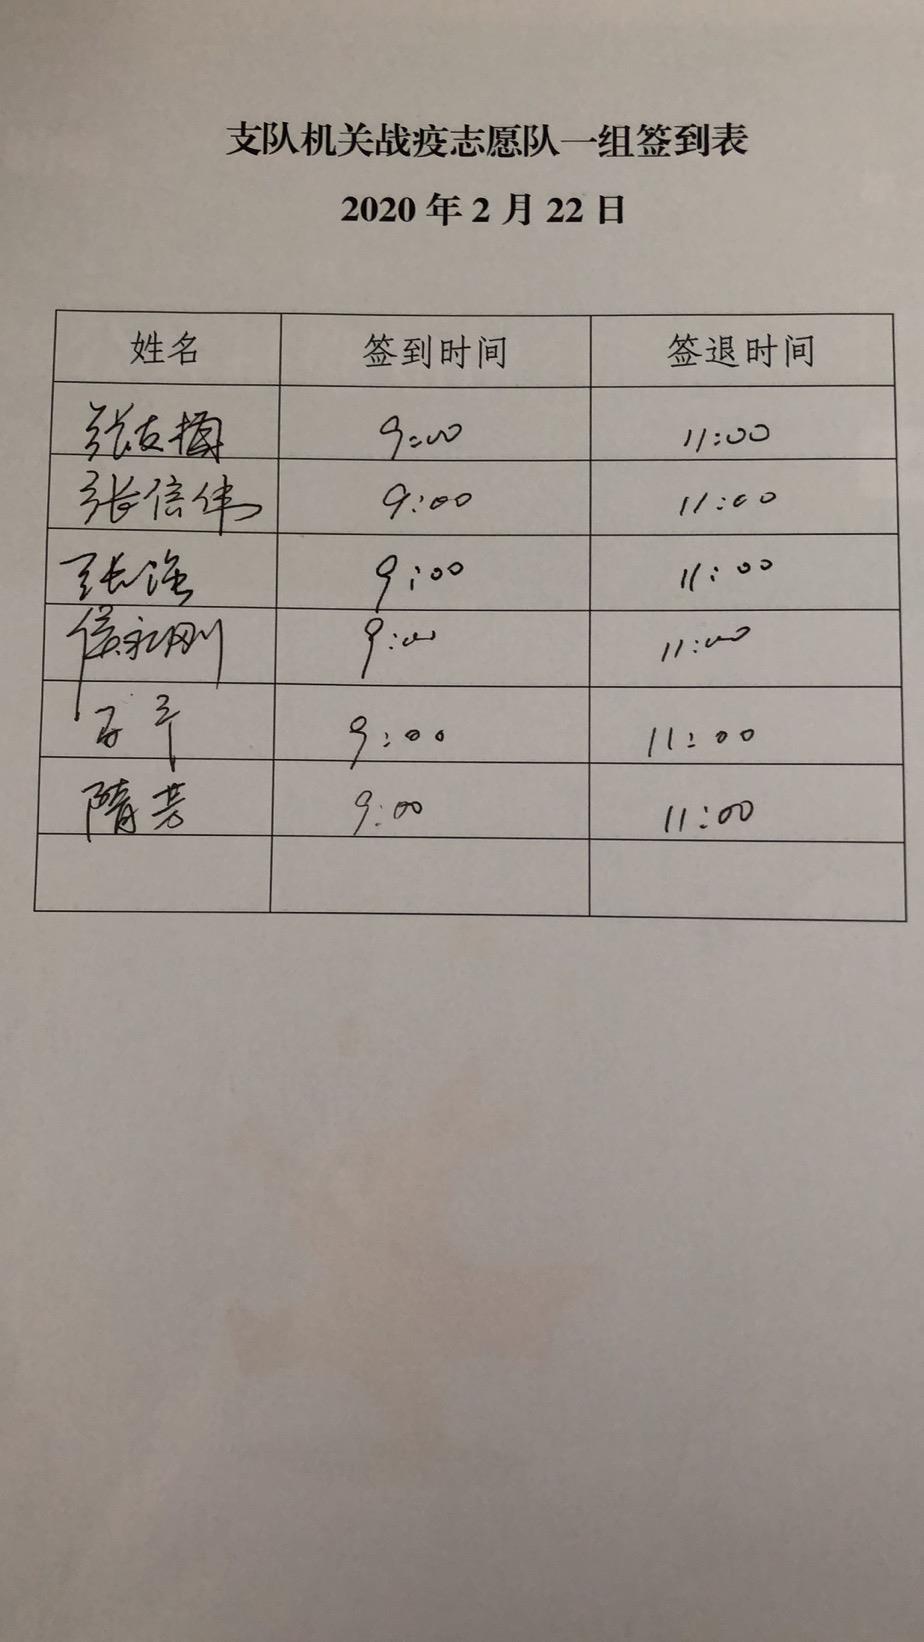 支队机关战疫志愿队一组签到表
2020 年 2 月 22 日
姓名 签到时间 签退时间
张友 9:00 11:00
张信伟 9:00 11:00
张海 9:00 11:00
侯永刚 9:00 11:00
9:00 11:00
隋芳 9:00 11:00